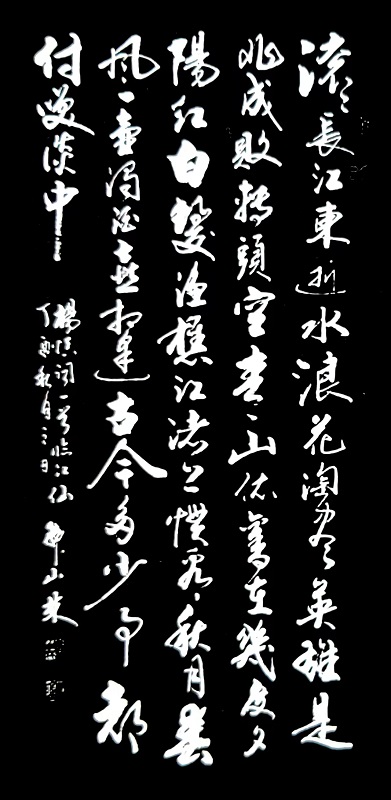 滚〻長江東逝水浪花淘尽英雄是
非成敗轉頭空青山依舊在幾度夕
陽紅白髮漁樵江渚上慣看秋月春
風一壺濁酒喜相逢古今多少事都
付笑談中
楊慎詞一首臨江仙
丁酉秋月